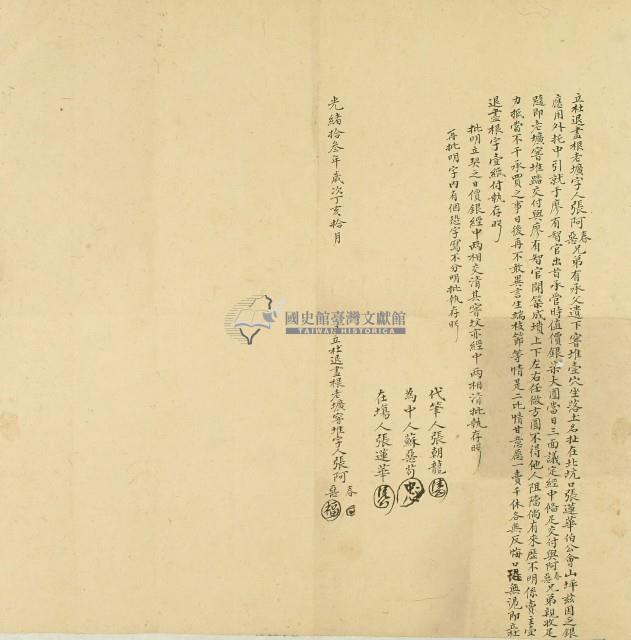 立杜退盡根老壙字人張阿春惡兄弟有承父遺下窨堆壹穴坐落土名址在北坑口張蓮華伯公會山坪兹因乏銀
應用外托中引就于廖有智官出首承當時值價銀柒大圓當日三面議定經中俻足交付與阿春惡兄弟親收足
隨即老壙窨堆踏交付與廖有智官開築成墳上下左右任做方圓不得他人阻擋倘有來歷不明係賣主壹
力抵當不干承買之事日後再不敢異言生端枝節等情是二比情甘意愿一賣千休各無反悔口恐無憑即立杜
退盡根字壹紙付執存炤
批明立契之日價銀經中兩相交清其窨坟亦經中兩相清批執存炤
再批明字內有個恐字寫不分明批執存炤
代筆人張朝龍
為中人蘇惡苟
在塲人張蓮華
光緒拾叁年歲次丁亥拾月
立杜退盡根老壙窨堆字人張阿春惡
國史館臺灣文獻館
TAIWAN HISTORICA